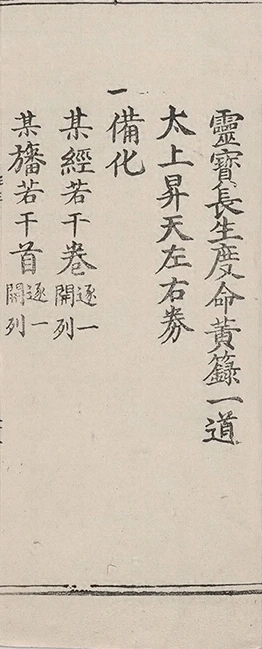 靈寶長生度命黄籙一道
太上昇天左右券
一備化
某經若干卷逐一開列
某旛若干首逐一開列